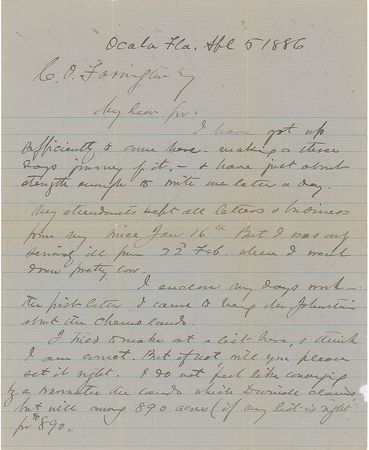 Ocala Fla. Apl 5 1886
C. O. Farrington Esq
My dear Sir:
I have got up
sufficiently to come here. making a three
days journey of it, - & have just about
strength enough to write one letter a day.
My attendants kept all letters & business
from my since Jan 16th But I was only
seriously ill from 22d Feb. when I went
down pretty low.
I enclose my days work -
the first letter I came to being Mr Johnston's
about the lands.
I tried to make out a list here, & think
I am correct. But if not will you please
set it right. I do not feel like conveying
by a warrantee the lands which claims,
but will convey 890 acres (if my list is right
for 890.